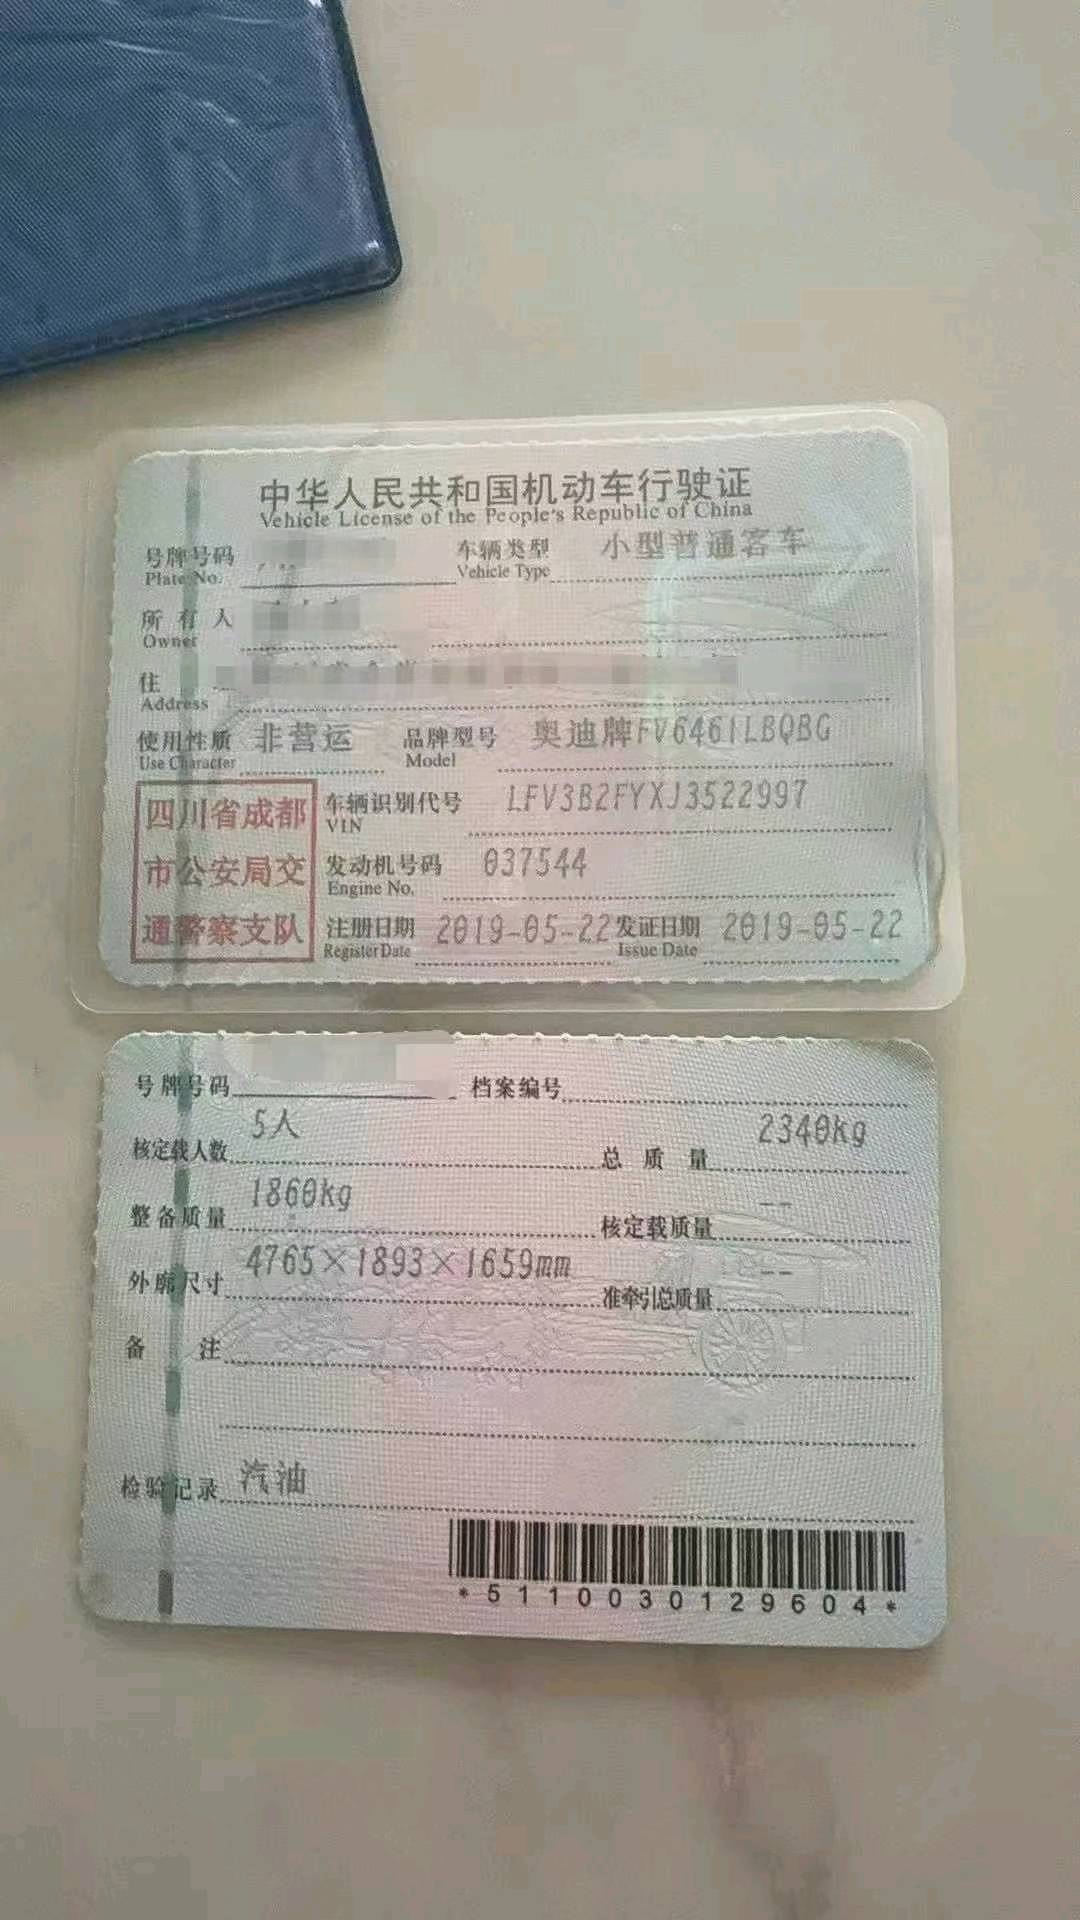 中华人民共和国机动车行驶证
Vehicle License of the People's Republic of China
号牌号码 车辆类型 小型普通客车
Plate No. Vehicle Type
所有人
Owner
住
Address
使用性质 非营运 品牌型号 奥迪牌FV6461LBQBG
Use Character Model
四川省成都
市公安局交
通警察支队
车辆识别代号 LFV3B2FYXJ3522997
VIN
发动机号码 037544
Engine No.
注册日期 2019-05-22 发证日期 2019-05-22
Register Date Issue Date
号牌号码 档案编号
核定载人数 5人 总质量 2340kg
整备质量 1860kg 核定载质量 --
外廓尺寸 4765×1893×1659mm 准牵引总质量 --
备注
检验记录 汽油
*5110030129604*